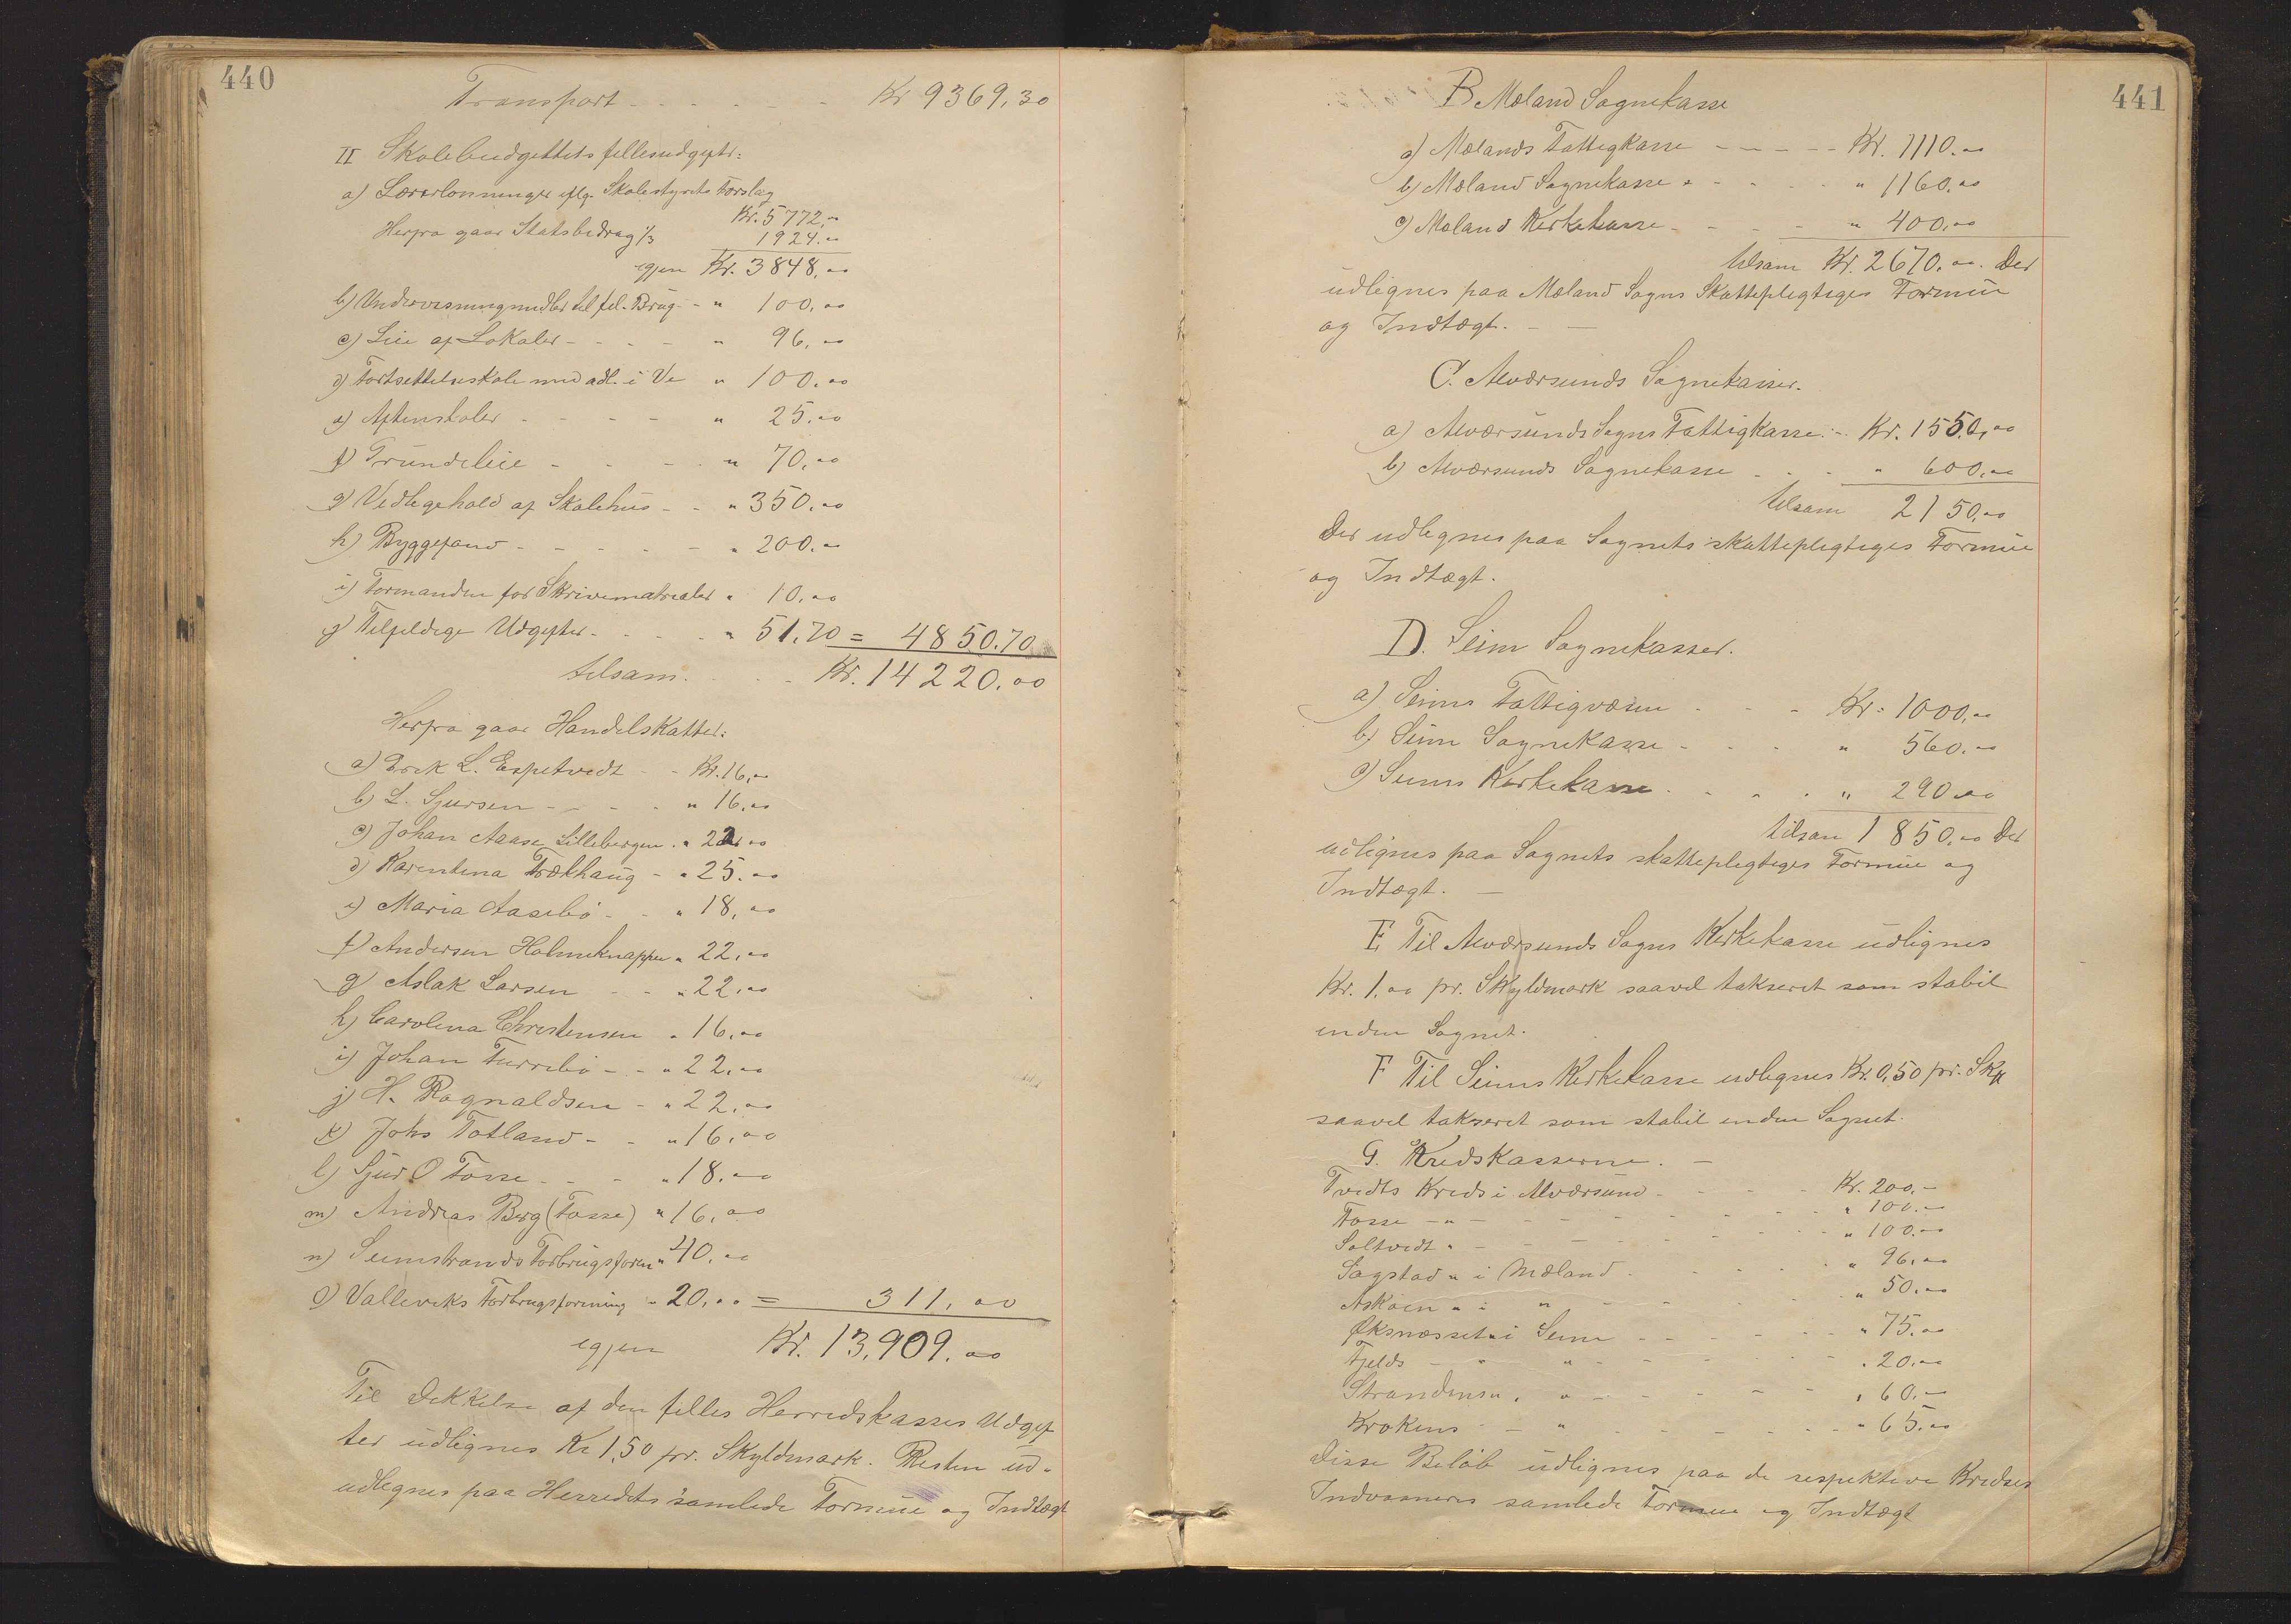 440
Transport - - - - - - Kr 9369,30
II Skolebudgettets fellesudgifter:
a) Lærerlønninger iflg. Skolestyrets Forslag
Kr. 5772,00
Herfra gaar Statsbidrag 1/3 1924.00
igjen Kr. 3848,00
b) Undervisningmidler til fel. Brug - " 100,00
c) Leie af Lokaler - - - - " 96,00
d) Fortsettelseskole med adl. i Ve " 100,00
e) Aftenskoler - - - - " 25.00
f) Grundleie - - - - " 70,00
g) Vedligehold af Skolehus - - " 350.00
h) Byggefand - - - - - " 200.00
i) Formanden for Skrivematrialer " 10.00
j) Tilfeldige Udgifter - - - - " 51,70 = 4850.70
tilsam. - - - Kr. 14220,00
Herfra gaar Handelskatter:
a) Erik L. Espetvedt - - Kr. 16,00
b) L. Sjursen - - - - " 16.00
c) Johan Aaase Lillebergen. " 22,00
d) Karentina Trækhaug - " 25.00
e) Maria Aasebø - - " 18,00
f) Andersen Holmeknappen " 22,00
g) Aslak Larsen - - " 22,00
h) Carolina Christensen " 16,00
i) Johan Turrebø - - " 22,00
j) H. Ragnaldsen - " 22,00
k) Johs Totland - - " 16,00
l) Sjur O Fosse - - - " 18.00
m) Andreas Berg (Fosse) " 16,00
n) Seimstrands Forbrugsforen " 40,00
o) Valleviks Forbrugsforening - 20,00 = 311,00
igjen Kr. 13,909,00
Til Dekkelse af den felles Herredskasses Udgif
ter udlignes Kr 1,50 pr. Skyldmark. Resten ud-
udlignes paa Herredets samlede Formue og Indtægt
441
B Mæland Sognekasse
a) Mælands Fattigkasse - - - - - Kr. 1110.00
b) Mæland Sognekasse - - - - - " 1160.00
c) Mæland Kirkekasse - - - - " 400,00
tilsam Kr. 2670.00. Der
udlignes paa Mæland Sogns Skattepligtiges Formue
og Indtægt. - -
C. Alværsunds Sognekasser.
a) Alværsunds Sogns Fattigkasse - Kr. 1550,00
b) Alværsunds Sognekasse - - - " 600,00
tilsam 2150,00
Der udlignes paa Sognets skattepligtiges Formue
og Indtægt.
D. Seim Sognekasser.
a) Seims Fattigvæsen - - - Kr. 1000,00
b) Seim Sognekasse - - - " 560.00
c) Seims Kirkekasse - - - - " 290.00
tilsam 1850,00 Der
udlignes paa Sognets skattepligtiges Formue og
Indtægt. -
E Til Alværsunds Sogns Kirkekasse udlignes
Kr. 1.00 pr. Skyldmark saavel takseret som stabil
inden Sognet.
F Til Seims Kirkekasse udlignes Kr. 0,50 pr. Sk
saavel takseret som stabil inden Sognet.
G. Kredskasserne. -
Tvedts Kreds i Alværsund - - - - Kr. 200.-
Fosse - " - - - - - - - " 100.-
Soltvedt " - - - - - - - " 100.00
Sagstad " i Mæland - - - - " 96,00
Askøen " i " - - - - - " 50.00
Øksnæsset " i Seim - - - - - " 75.00
Fjelds - " " - - - - - " 20.00
Strandens " " - - - - - " 60.-
Krokens - " - - - - - " 65.00
Disse Beløb udlignes paa de respektive Kredses
Indvaaneres samlede Formue og Indtægt